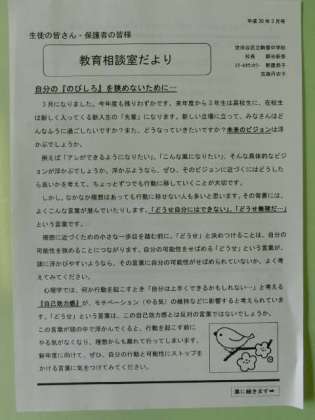 平成30年3月号
生徒の皆さん・保護者の皆様
教育相談室だより
世田谷区立駒留中学校
校長
スクールカウンセラー
自分の『のびしろ』を狭めないために…
3月になりました。今年度も残りわずかです。来年度から3年生は高校生に、在校生
は新しく入ってくる新入生の「先輩」になります。新しい立場に立って、みなさんはど
んなふうに過ごしたいですか？また、どうなっていきたいですか？未来のビジョンは浮
かぶでしょうか。
例えば「アレができるようになりたい」、「こんな風になりたい」、そんな具体的なビジ
ョンが浮かぶでしょうか。浮かぶようなら、ぜひ、そのビジョンに近づくにはどうした
ら良いかを考えて、ちょっとずつでも行動に移していくことが大切です。
しかし、なかなか理想はあっても行動に移せない人も多いと思います。その背景には、
よくこんな言葉が潜んでいたりします。「どうせ自分にはできない」、「どうせ無理だ…」
という言葉です…。
理想に近づくための小さな一歩目を踏む前に、「どうせ」と決めつけることは、自分の
可能性を狭めることにつながります。自分の可能性をせばめる「どうせ」という言葉が、
頭に浮かびやすいようなら、その言葉に自分の可能性がせばめられていないか、よく考
えてみてください。
心理学では、何か行動を起こすとき「自分は上手くできるかもしれない…」と考える
『自己効力感』が、モチベーション（やる気）の維持などに影響すると考えられていま
す。「どうせ」という言葉は、この自己効力感とは反対の言葉ではないでしょうか。
この言葉が頭の中で浮かんでくると、行動を起こす前に
やる気がなくなり、理想からも離れて行ってしまいます。
新年度に向けて、ぜひ、自分の行動と可能性にストップを
かける言葉に気をつけてみてください。
裏に続きます➡